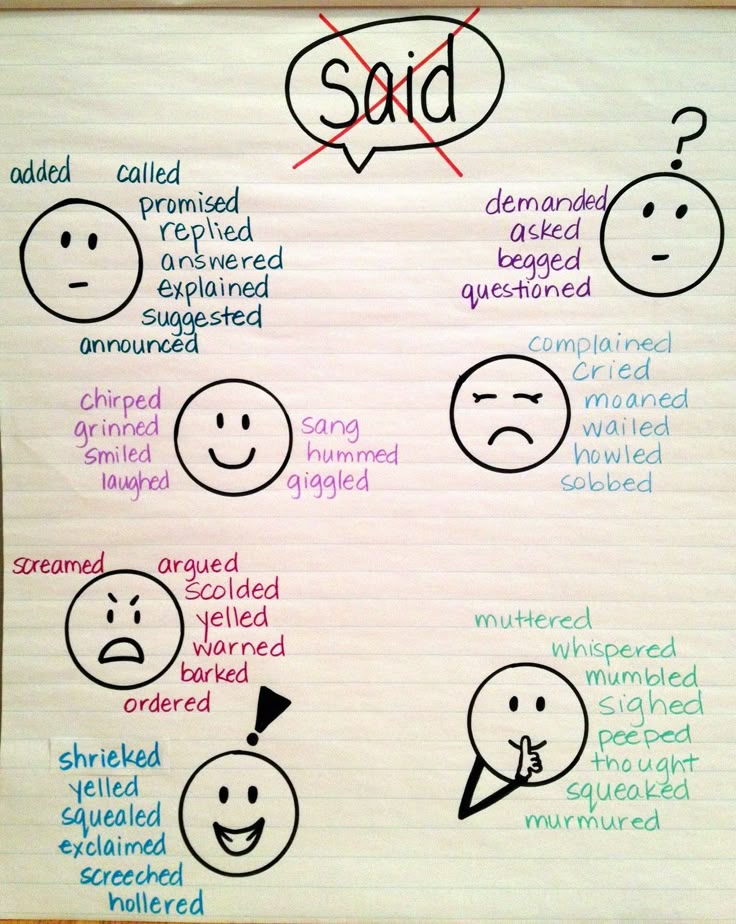 said
?
added called
promised
replied
answered
explained
suggested
announced
demanded
asked
begged
questioned
chirped
grinned
smiled
laughed
sang
hummed
giggled
complained
cried
moaned
wailed
howled
sobbed
screamed argued
scolded
yelled
warned
barked
ordered
muttered
whispered
mumbled
sighed
peeped
thought
squeaked
murmured
!
shrieked
yelled
squealed
exclaimed
screeched
hollered